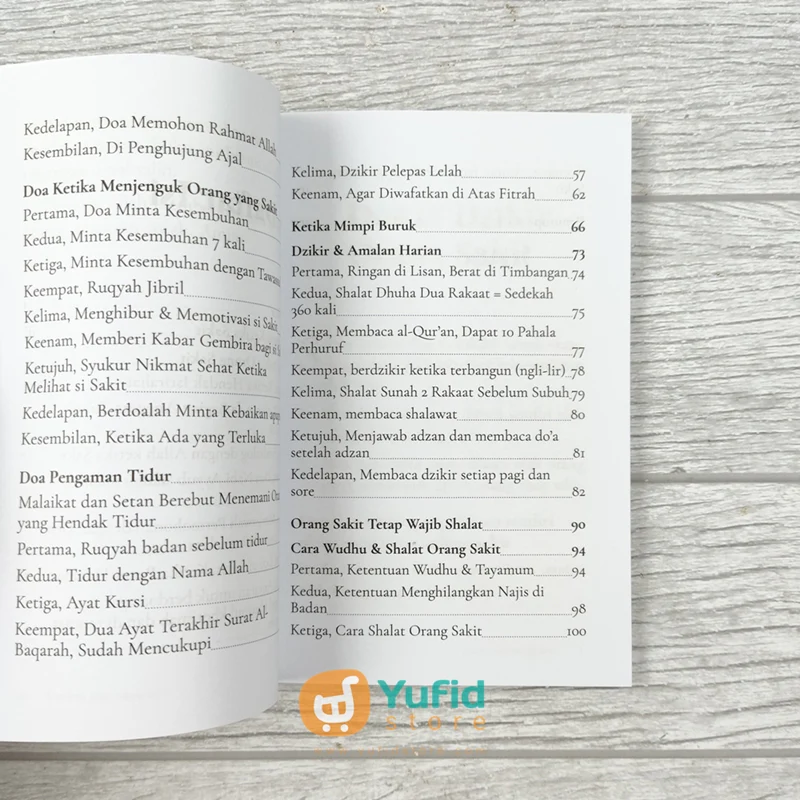 Kedelapan, Doa Memohon Rahmat Allah
Kesembilan, Di Penghujung Ajal
Doa Ketika Menjenguk Orang yang Sakit
Pertama, Doa Minta Kesembuhan
Kedua, Minta Kesembuhan 7 kali
Ketiga, Minta Kesembuhan dengan
Keempat, Ruqyah Jibril
Kelima, Menghibur & Memotivasi si Sakit
Keenam, Memberi Kabar Gembira bagi si
Ketujuh, Syukur Nikmat Sehat Ketika
Melihat si Sakit
Kedelapan, Berdoalah Minta Kebaikan
Kesembilan, Ketika Ada yang Terluka
Doa Pengaman Tidur
Malaikat dan Setan Berebut Menemani
yang Hendak Tidur
Pertama, Ruqyah badan sebelum tidur
Kedua, Tidur dengan Nama Allah
Ketiga, Ayat Kursi
Keempat, Dua Ayat Terakhir Surat Al-
Baqarah, Sudah Mencukupi
Kelima, Dzikir Pelepas Lelah 57
Keenam, Agar Diwafatkan di Atas Fitrah 62
Ketika Mimpi Buruk 66
Dzikir & Amalan Harian 73
Pertama, Ringan di Lisan, Berat di Timbangan 74
Kedua, Shalat Dhuha Dua Rakaat = Sedekah
360 kali 75
Ketiga, Membaca al-Qur'an, Dapat 10 Pahala
Perhuruf 77
Keempat, berdzikir ketika terbangun (ngli-lir) 78
Kelima, Shalat Sunah 2 Rakaat Sebelum Subuh 79
Keenam, membaca shalawat 80
Ketujuh, Menjawab adzan dan membaca do'a
setelah adzan 81
Kedelapan, Membaca dzikir setiap pagi dan
sore 82
Orang Sakit Tetap Wajib Shalat 90
Cara Wudhu & Shalat Orang Sakit 94
Pertama, Ketentuan Wudhu & Tayamum 94
Kedua, Ketentuan Menghilangkan Najis di
Badan 98
Ketiga, Cara Shalat Orang Sakit 100
Yufid
store